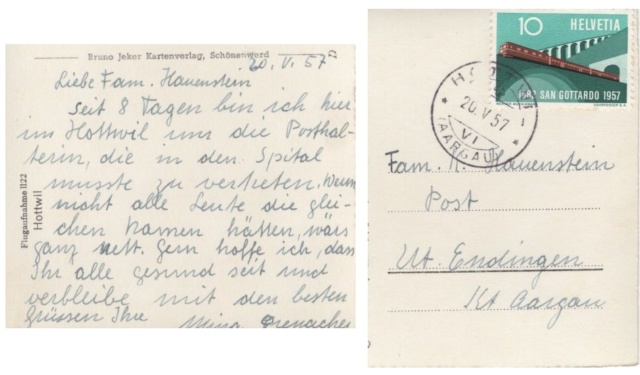 Bruno Jeker Kartenverlag, Schönenwerd
20. V. 57
Liebe Fam. Hauenstein
Seit 8 Tagen bin ich hier
im Hottwil um die Posthal-
terin, die in den Spital
musste zu vertreten. Wenn
nicht alle Leute die glei-
chen Namen hätten, wärs
ganz nett. Gern hoffe ich, dass
Ihr alle gesund seit und
verbleibe mit den besten
Grüssen Ihre Mina
Flugaufnahme 1122
Hottwil
10 HELVETIA
1882 SAN GOTTARDO 1957
20.V.57
VI
(AARGAU)
Fam. Hauenstein
Post
Ut. Endingen
Kt Aargau